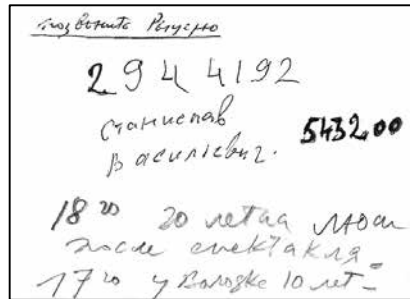 позвонить
2944192
Станислав
Василіевич.
543200
18 20 20 летиа
после спектакля -
17 20 у Володке 10 лет -